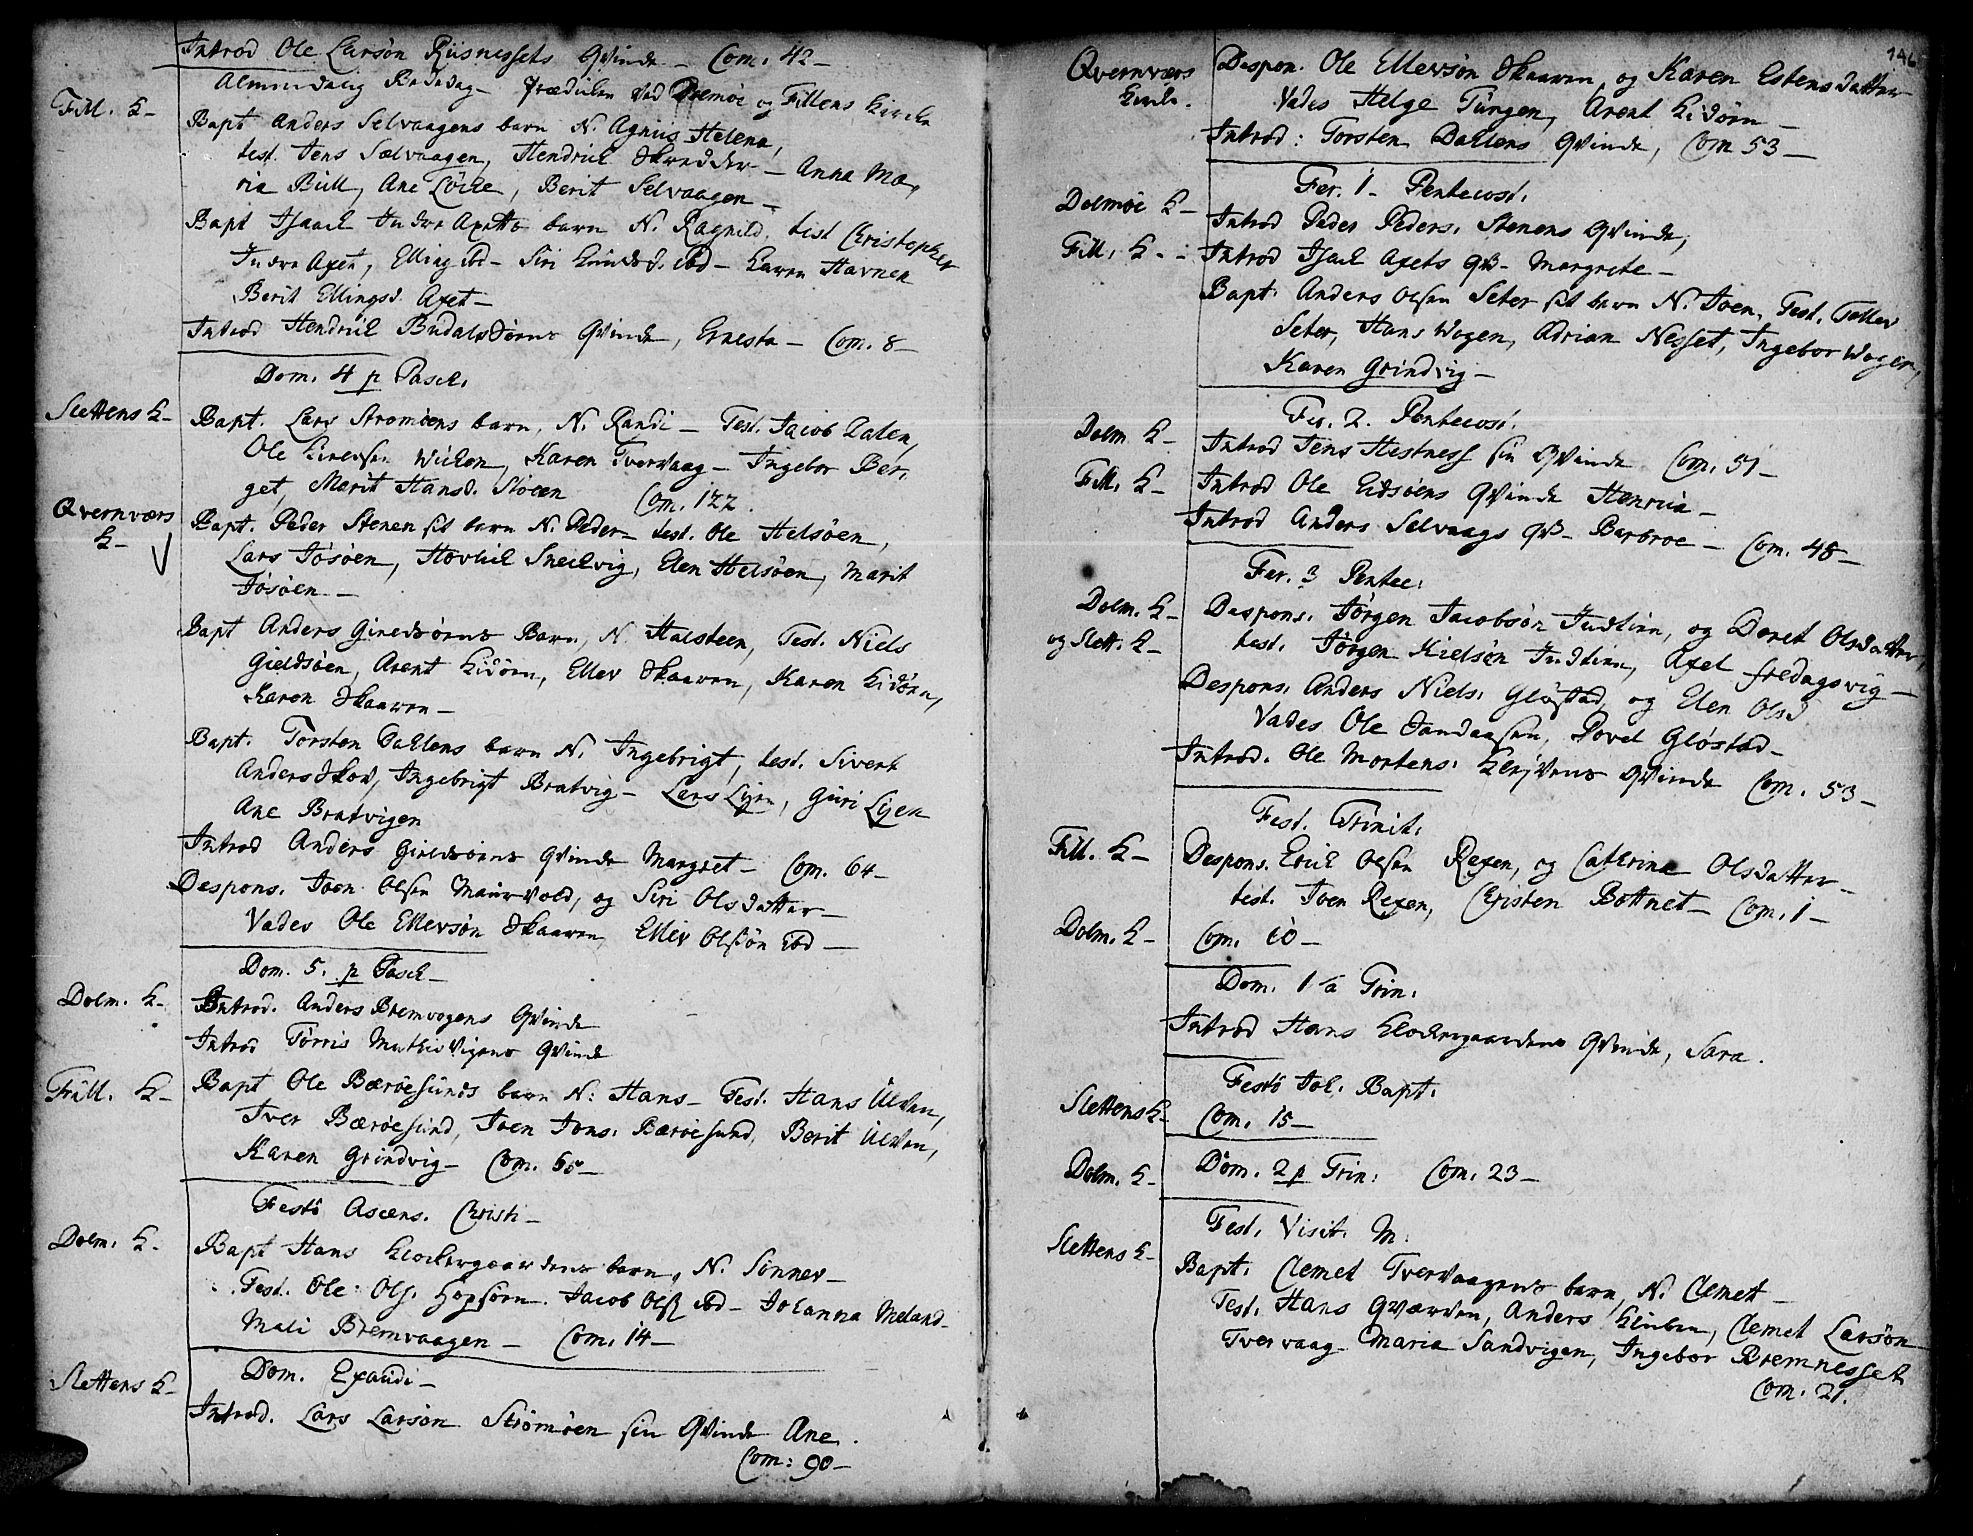 Introd Ole Larsøn Riisnessets Qvinde – Com. 42 –
Almindelig Bededag – Prædiken ved Dolmøe og Fillens Kirche
Fill. K –
Bapt Anders Selvaagens barn N. Agnis Helena,
test. Jens Sælvaagen, Hendrich Skredder – Anna Ma,
ria Bull, Ane Löcke, Berit Selvaagen –
Bapt Isaach Indre Axetts barn N. Ragnild. test Christopher
Indre Axet, Elling ibd – Siri Knudsd. ibd – Karen Havnen
Berit Ellingsd. Axet –
Introd Hendrich Budalsiörns Qvinde, Ernesta – Com. 8 –
Dom. 4 p Pasch.
Slettens K –
Bapt. Lars Strömöens barn, N. Randi – Test. Jacob Dalen,
Ole Wichen, Karen Tvervaag – Ingebor Ber,
get, Marit Hansd. Com. 122.
Qvernværs
K –
Bapt. Peder Stenen sit barn N. Peder – test. Ole Helsöen,
Lars Jösöen, Snechvig, Elen Helsöen, Marit
Jösöen –
Bapt Anders Gieldsörns Barn, N. Halsteen, Test. Niels
Gieldsöen, Arent Kidörn, Ellev Skaaren, Karen Kidörn,
Karen Skaaren –
Bapt. Torsten Dahlens barn N. Ingebrigt, test. Sivert
Anders Skov, Ingebrigt Bratvig – Lars Lijen, Guri Lijen
Ane Bratvigen
Introd Anders Gieldsörns Qvinde Margret – Com. 64 –
Despons. Joen Olsen Maurvold, og Siri Olsdatter –
Vades Ole Ellevsön Skaaren, Ellev Olsön ibd –
Dom. 5. p Pasch –
Dolm. K –
Introd. Anders Bremvogens Qvinde
Introd Törris Qvinde
Fill. K –
Bapt Ole Bæröesunds barn N: Hans – Test. Hans Ulven,
Iver Bæröesund, Joen Jons: Bæröesund, Berit Ulven,
Karen Grindvig – Com. 65 –
Festo Ascens. Christi –
Dolm. K –
Bapt Hans Klochergaardens barn, N. Sönnev –
Test. Ole Ols. Hopsörn. Jacob Ols ibd – Johanna Meland –
Mali Bremvaagen – Com. 14 –
Dom. Exaudi –
Slettens K –
Introd. Lars Larsön Strömöen sin Qvinde Ane.
Com: 90 –
146
Qvernværs
Kirche.
Despon. Ole Ellevsön Skaaren, og Karen Estensdatter
Vades Helge Tüngen, Arent Kidörn –
Introd: Torsten Dahlens Qvinde, Com 53 –
Fer. 1 – Pentecost.
Dolmöe K –
Introd Peder Peders. Stenens Qvinde,
Fill, K – –
Introd Isach Axets Qv – Margrete –
Bapt. Anders Olsen Seter sit barn N. Joen, Test. Tollev
Seter, Hans Wogen, Adrian Nesset, Ingebor Wogen,
Karen Grindvig –
Fer. 2. Pentecost.
Dolm. K –
Introd Jens Hestness sin Qvinde Com. 51 –
Fill. K –
Introd Ole Eidsöens Qvinde Henricia –
Introd Anders Selvaags Qv – Barbroe – Com. 48 –
Fer. 3 Pentec.
Dolm. K –
og Slett. K –
Despons. Jörgen Jacobsön Indtian, og Doret Olsdatter,
test. Jörgen Nielsön Indtian, Axel Fredagsvig –
Despons. Anders Niels. Glöstad, og Elen Olsd
Vades Ole Povel Glöstad –
Introd. Ole Mortens. Qvinde Com. 53 –
Fest. Trinit.
Fill. K –
Despons. Erich Olsen Rexen, og Cathrina Olsdatter –
test. Joen Rexen, Christen Bottnet – Com. 1 –
Dolm. K –
Com. 10 –
Dom. 1 a Trin.
Introd Hans Klochergaardens Qvinde, Sara.
Festo Joh. Bapt.
Slettens K –
Com. 15 –
Dolm. K –
Dom. 2 p Trin. Com. 23 –
Fest. Visit. M.
Slettens K –
Bapt. Clemet Tvervaagens barn, N. Clemet –
Test. Hans Qværven, Anders Kluben, Clemet Larsön
Tvervaag Maria Sandvigen, Ingebor Bremnesset
Com. 21.